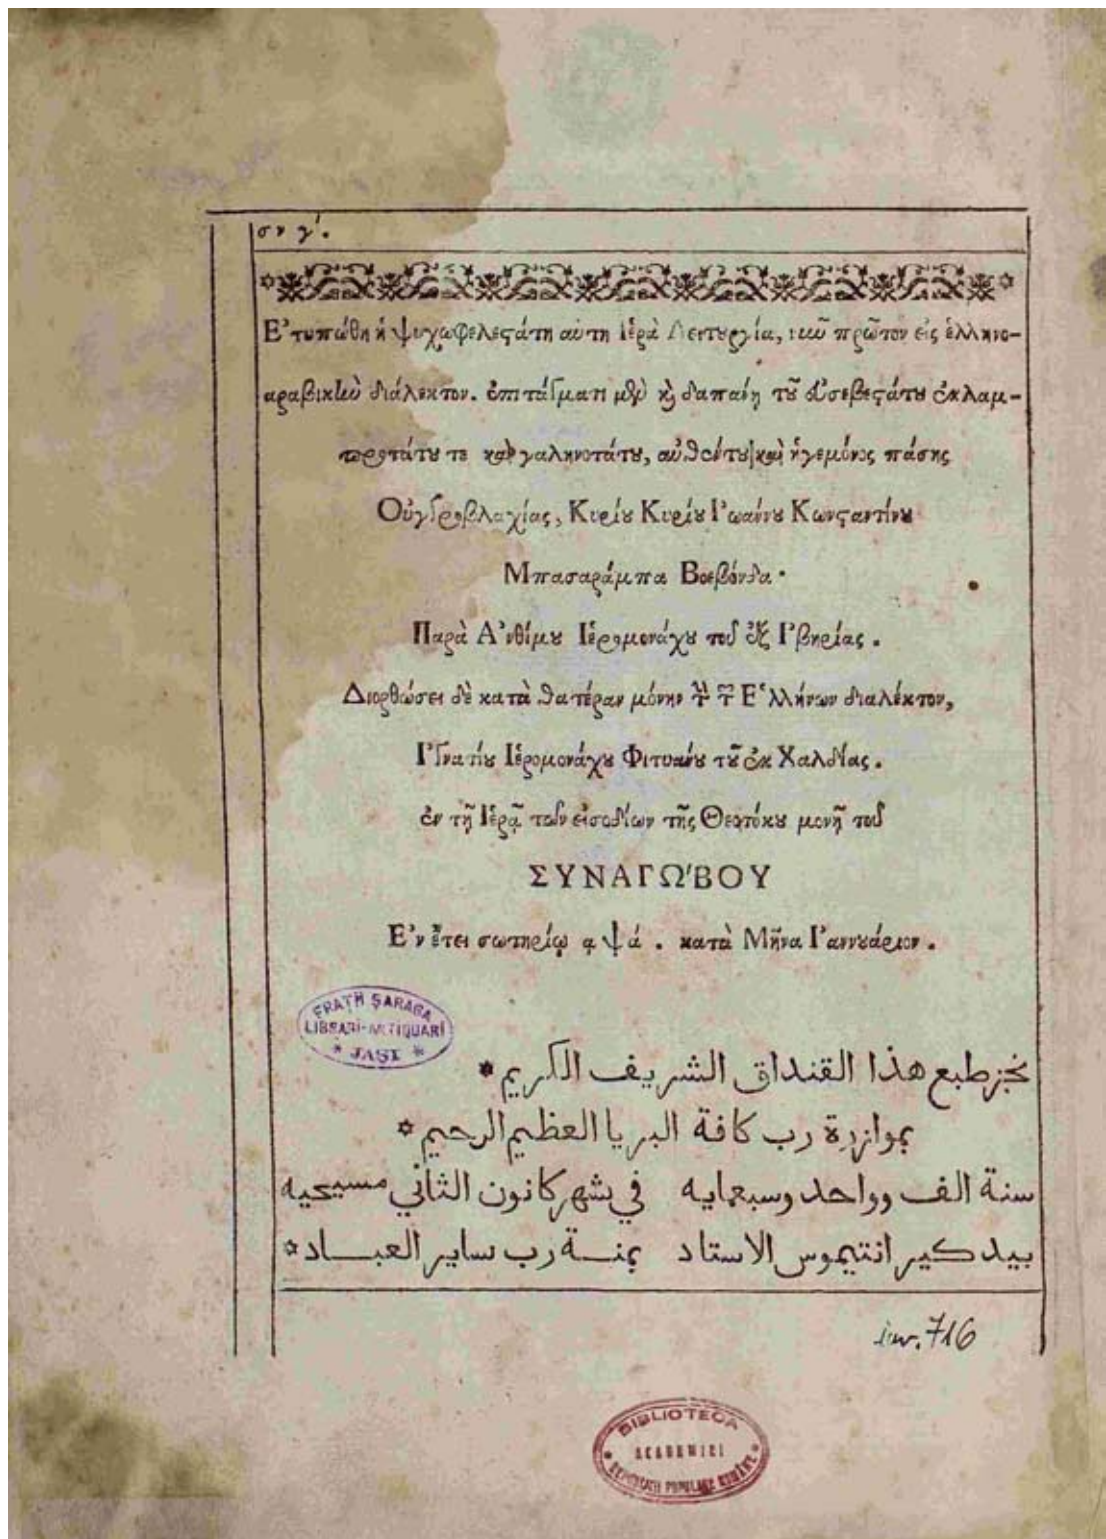 σνγ΄.
Ε᾽τυπώθη ἡ ψυχωφελεϛάτη αὐτη Ἱερὰ Λειτυργία, νιῦ πρῶτον εἰς ἑλληνο-
αραβικὴν διάλεκτον. ἐπιτάγματι μὲν κ̀ δαπάνῃ τοῦ εὐσεβεϛάτου ἐκλαμ-
προτάτου τε καὶ γαληνοτάτου, αὐθέντου καὶ ἡγεμόνος πάσης
Οὐγδροβλαχίας, Κυρίου Κυρίου Ι᾽ωάννου Κωνϛαντίνου
Μπασαράμπα Βοεβόνδα.
Παρὰ Α᾽νθίμου Ἱερομονάχου τοῦ ἐξ Ι᾽βηρίας.
Διορθώσει δὲ κατὰ θατέραν μόνην τὴν τῶν Ε῾λλήνων διαλέκτον,
Ι᾽γνατίου Ἱερομονάχου Φιτυάνου τοῦ ἐκ Χαλδίας.
ἐν τῇ Ἱερᾷ τῶν εἰσοδίων τῆς Θεοτόκου μονῇ τοῦ
ΣΥΝΑΓΩ᾽ΒΟΥ
Ε᾽ν ἔτει σωτηρίῳ αψά. κατὰ Μῆνα Ι᾽αννουάριον.
FRAȚII ȘARAGA
LIBRARI-ANTIQUARI
* JAȘI *
نجز طبع هذا القنداق الشريف الكريم*
بموازرة رب كافة البريا العظيم الرحيم*
سنة الف وواحد وسبعمايه في شهر كانون الثاني مسيحيه
بيد كير انتيموس الاستاد بمنـــة رب ساير العبـــاد*
inv. 716
BIBLIOTECA
ACADEMIEI
REPUBLICII POPULARE ROMÂNE